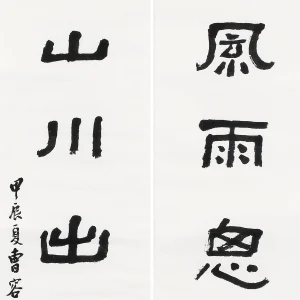 風雨思
山川出
甲辰夏曹容